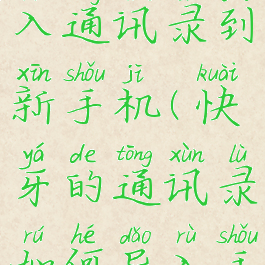 入通讯录到
xīn shǒu jī kuài
新手机(快
yá de tōng xùn lù
牙的通讯录
rú hé dǎo rù shǒu
如何导入手